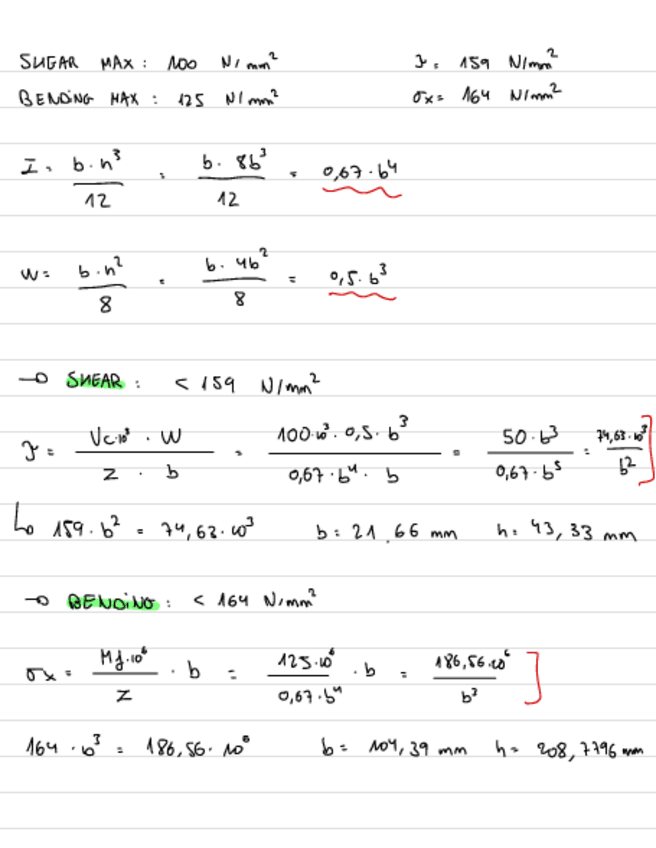 SHEAR MAX : 100 N/mm² τ = 159 N/mm²
BENDING MAX : 125 N/mm² σx = 164 N/mm²
I = b·h³/12 = b·8b³/12 = 0,67·b⁴
W = b·h²/8 = b·4b²/8 = 0,5·b³
→ SHEAR : < 159 N/mm²
τ = Vc·10³ · W / I · b = 100·10³ · 0,5·b³ / 0,67·b⁴ · b = 50·b³ / 0,67·b⁵ = 74,63·10³ / b² ]
↳ 159·b² = 74,63·10³ b = 21,66 mm h = 43,33 mm
→ BENDING : < 164 N/mm²
σx = Mf·10⁶ / I · b = 125·10⁶ / 0,67·b⁴ · b = 186,56·10⁶ / b³ ]
164 · b³ = 186,56·10⁶ b = 104,39 mm h = 208,7796 mm